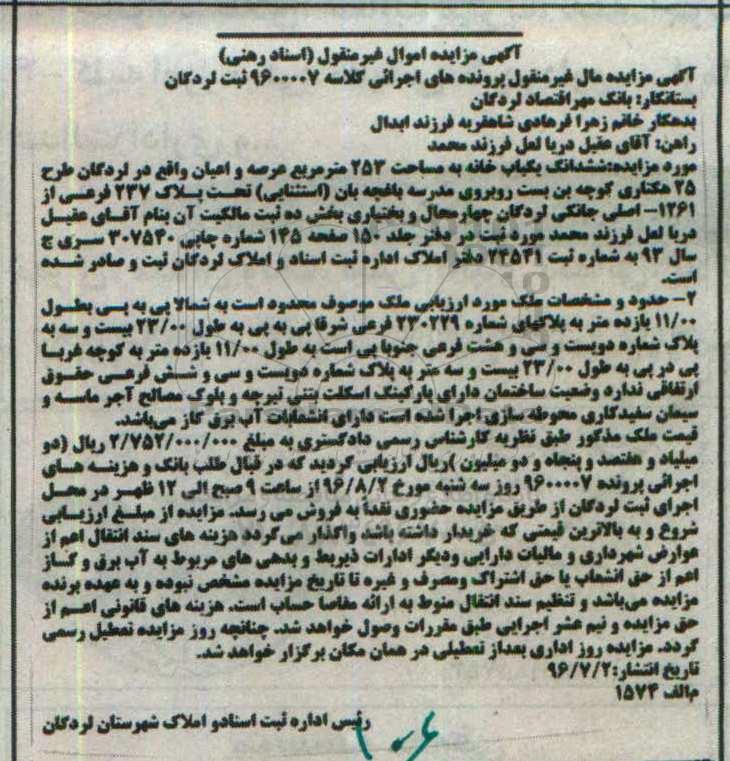 آگهی مزایده اموال غیرمنقول (اسناد رهنی)
آگهی مزایده مال غیرمنقول پرونده های اجرائی کلاسه ۹۶۰۰۰۰۷ ثبت لردگان
بستانکار: بانک مهراقتصاد لردگان
بدهکار خانم زهرا فرهادی شاهقریه فرزند ابدال
راهن: آقای عقیل دریا لعل فرزند محمد
مورد مزایده:ششدانگ یکباب خانه به مساحت ۲۵۳ مترمربع عرصه و اعیان واقع در لردگان طرح
۲۵ هکتاری کوچه بن بست روبروی مدرسه باغچه بان (استثنایی) تحت پلاک ۲۳۷ فرعی از
۱۲۶۱- اصلی جانکی لردگان چهارمحال و بختیاری بخش ده ثبت مالکیت آن بنام آقای عقیل
دریا لعل فرزند محمد مورد ثبت در دفتر جلد ۱۵۰ صفحه ۱۴۵ شماره چاپی ۳۰۷۵۴۰ سری ج
سال ۹۳ به شماره ثبت ۲۳۵۴۱ دفتر املاک اداره ثبت اسناد و املاک لردگان ثبت و صادر شده
است.
۲- حدود و مشخصات ملک مورد ارزیابی ملک موصوف محدود است به شمالا پی به پی بطول
۱۱/۰۰ یازده متر به پلاکهای شماره ۲۳۰٫۲۲۹ فرعی شرقا پی به پی به طول ۲۳/۰۰ بیست و سه به
پلاک شماره دویست و سی و هشت فرعی جنوبا پی است به طول ۱۱/۰۰ یازده متر به کوچه غربا
پی در پی به طول ۲۳/۰۰ بیست و سه متر به پلاک شماره دویست و سی و شش فرعی حقوق
ارتفاقی ندارد وضعیت ساختمان دارای پارکینگ اسکلت بتنی تیرچه و بلوک مصالح آجر ماسه و
سیمان سفیدکاری محوطه سازی اجرا شده است دارای انشعابات آب برق گاز می‌باشد.
قیمت ملک مذکور طبق نظریه کارشناس رسمی دادگستری به مبلغ ۲/۷۵۲/۰۰۰/۰۰۰ ریال (دو
میلیاد و هفتصد و پنجاه و دو میلیون )ریال ارزیابی گردید که در قبال طلب بانک و هزینه های
اجرائی پرونده ۹۶۰۰۰۰۷ روز سه شنبه مورخ ۹۶/۸/۲ از ساعت ۹ صبح الی ۱۲ ظهر در محل
اجرای ثبت لردگان از طریق مزایده حضوری نقداً به فروش می رسد. مزایده از مبلغ ارزیابی
شروع و به بالاترین قیمتی که خریدار داشته باشد واگذار می گردد هزینه های سند انتقال اعم از
عوارض شهرداری و مالیات دارایی ودیگر ادارات ذیربط و بدهی های مربوط به آب برق و گاز
اعم از حق انشعاب یا حق اشتراک ومصرف و غیره تا تاریخ مزایده مشخص نبوده و به عهده برنده
مزایده می‌باشد و تنظیم سند انتقال منوط به ارائه مفاصا حساب است. هزینه های قانونی اعم از
حق مزایده و نیم عشر اجرایی طبق مقررات وصول خواهد شد. چنانچه روز مزایده تعطیل رسمی
گردد. مزایده روز اداری بعداز تعطیلی در همان مکان برگزار خواهد شد.
تاریخ انتشار:۹۶/۷/۲
م‌الف ۱۵۷۴
رئیس اداره ثبت اسنادو املاک شهرستان لردگان